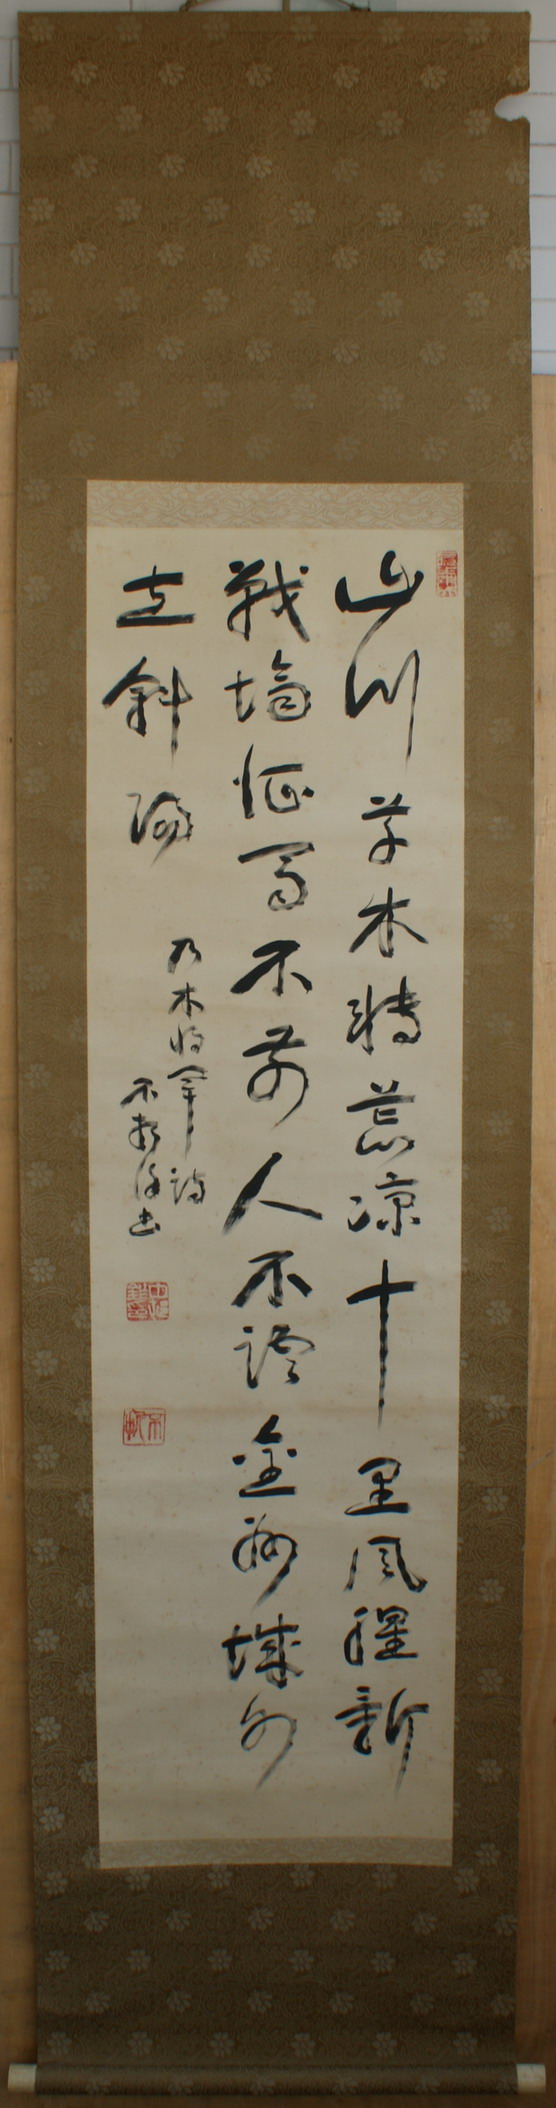 山川草木轉荒凉十里風腥新
戰場征馬不前人不語金州城外
立斜陽
乃木将軍詩
不折